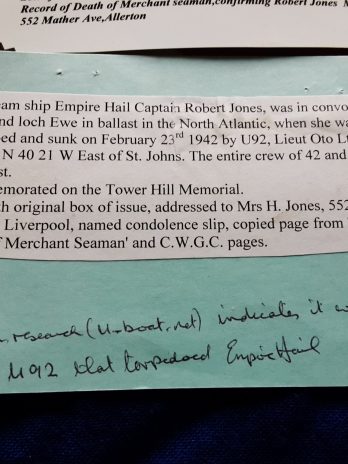 Record of Death of Merchant seaman,confirming Robert Jones
552 Mather Ave,Allerton
am ship Empire Hail Captain Robert Jones, was in convo
nd loch Ewe in ballast in the North Atlantic, when she wa
ed and sunk on February 23rd 1942 by U92, Lieut Oto Lt
N 40 21 W East of St. Johns. The entire crew of 42 and
st.
emorated on the Tower Hill Memorial.
h original box of issue, addressed to Mrs H. Jones, 552
Liverpool, named condolence slip, copied page from
f Merchant Seaman' and C.W.G.C. pages.
research (U-boat.net) indicates it
U92 that torpedoed Empire Hail